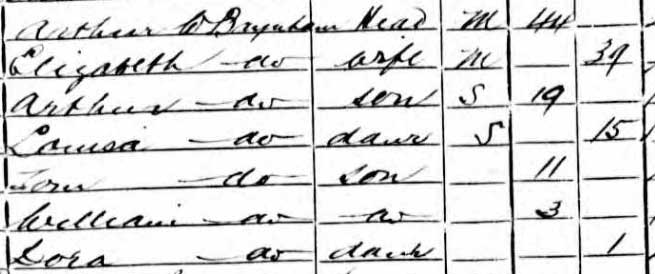 Arthur W Baynham Head M 44
Elizabeth do wife M 39
Arthur do son S 19
Louisa do daur S 15
Tom do son 11
William do do 3
Dora do daur 1